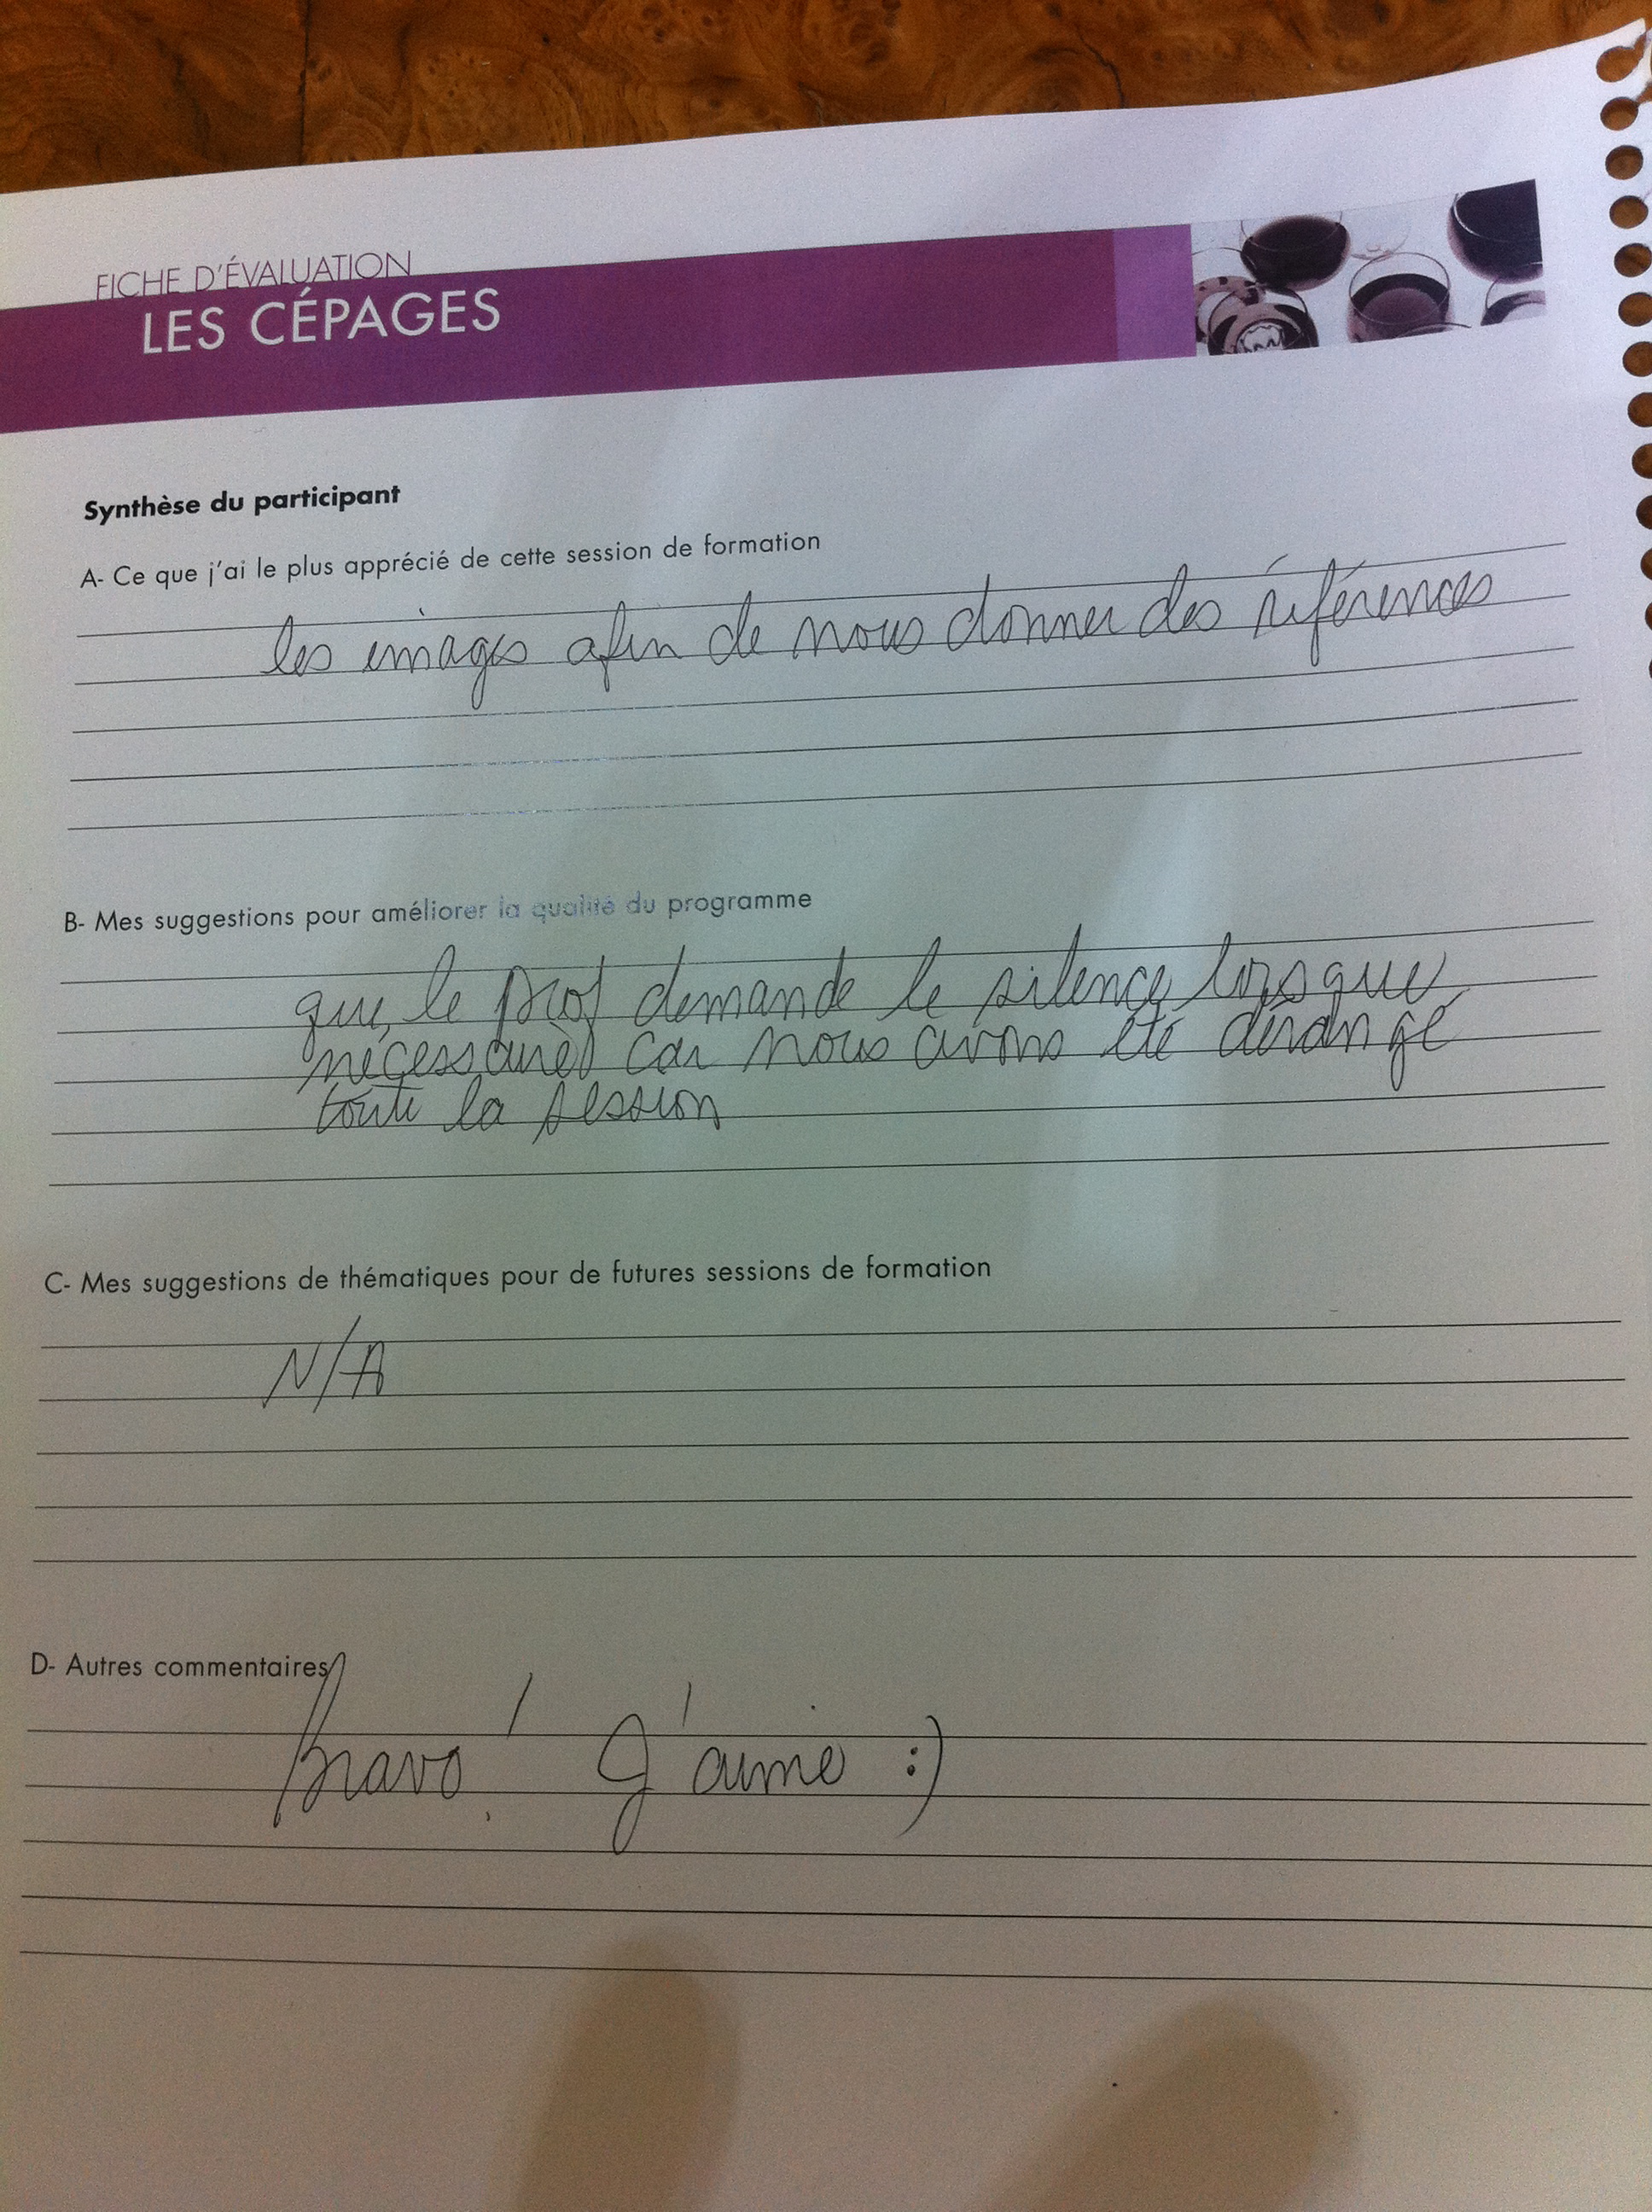 FICHE D'ÉVALUATION
LES CÉPAGES
Synthèse du participant
A- Ce que j'ai le plus apprécié de cette session de formation
les images afin de nous donner des références
B- Mes suggestions pour améliorer la qualité du programme
que le prof demande le silence lorsque
nécessaire car nous avons été dérangé
toute la session
C- Mes suggestions de thématiques pour de futures sessions de formation
N/A
D- Autres commentaires
Bravo! J'aime :)